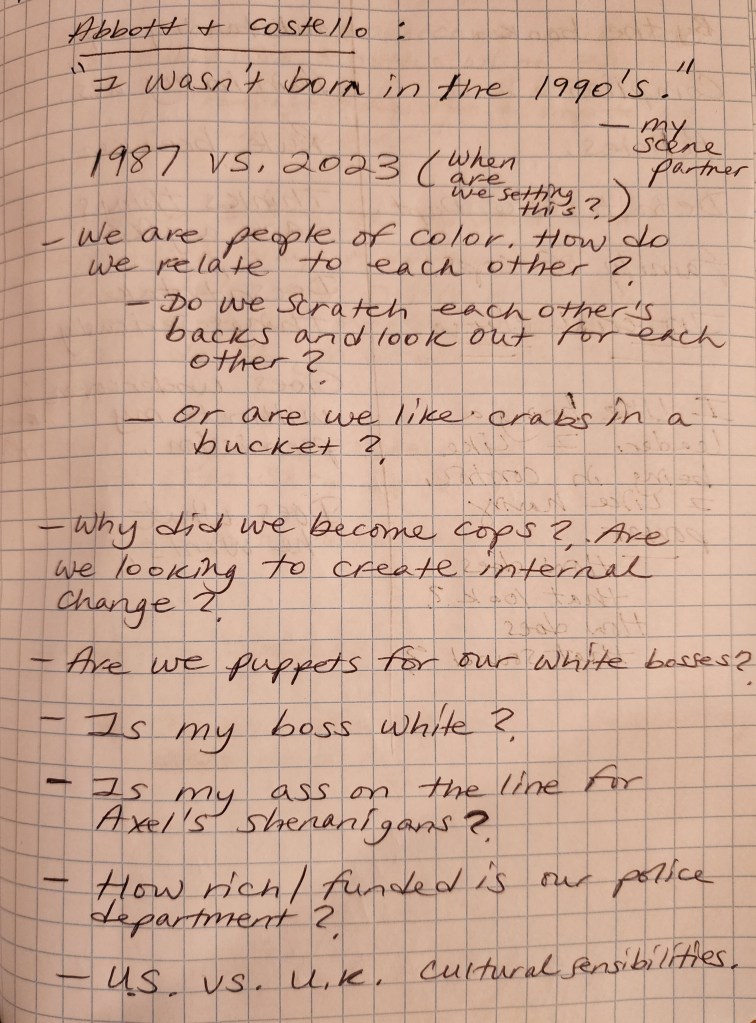 Abbott + Costello :
"I wasn't born in the 1990's."
— my
scene
partner
1987 vs. 2023 (when
are
we setting
this?)
- We are people of color. How do
we relate to each other?
- Do we scratch each other's
backs and look out for each
other?
- Or are we like crabs in a
bucket?
- Why did we become cops? Are
we looking to create internal
change?
- Are we puppets for our white bosses?
- Is my boss white?
- Is my ass on the line for
Axel's shenanigans?
- How rich/funded is our police
department?
- U.S. vs. U.K. cultural sensibilities.